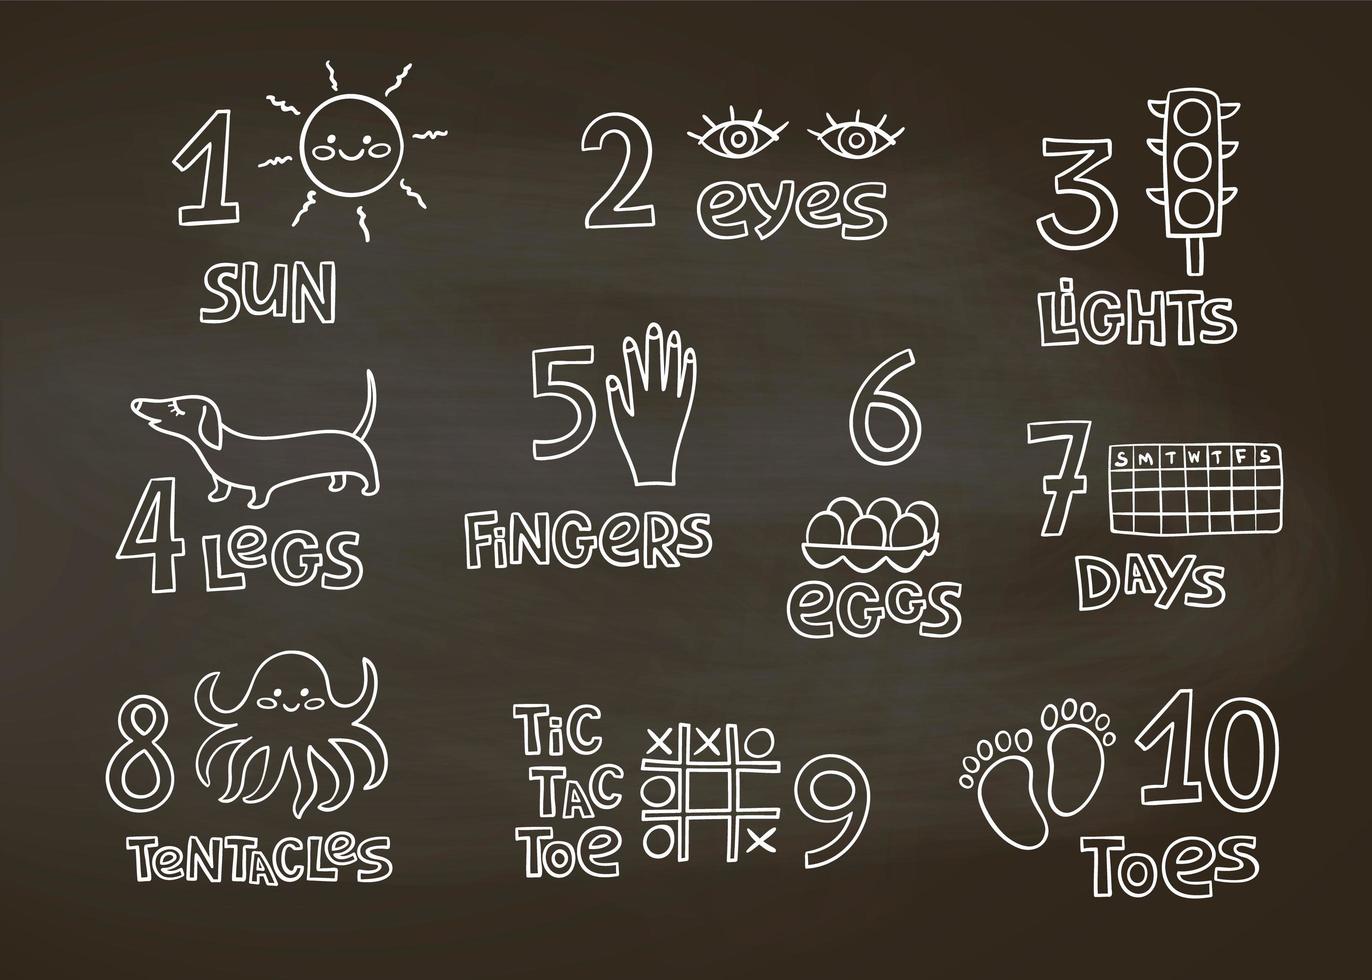 1
SUN
2
eyes
3
LiGHTS
4
LeGS
5
FiNGeRS
6
eGGS
7
S M T W T F S
DAYS
8
TeNTACLeS
TiC
TAC
TOe
X X O
O
O X
9
10
TOeS